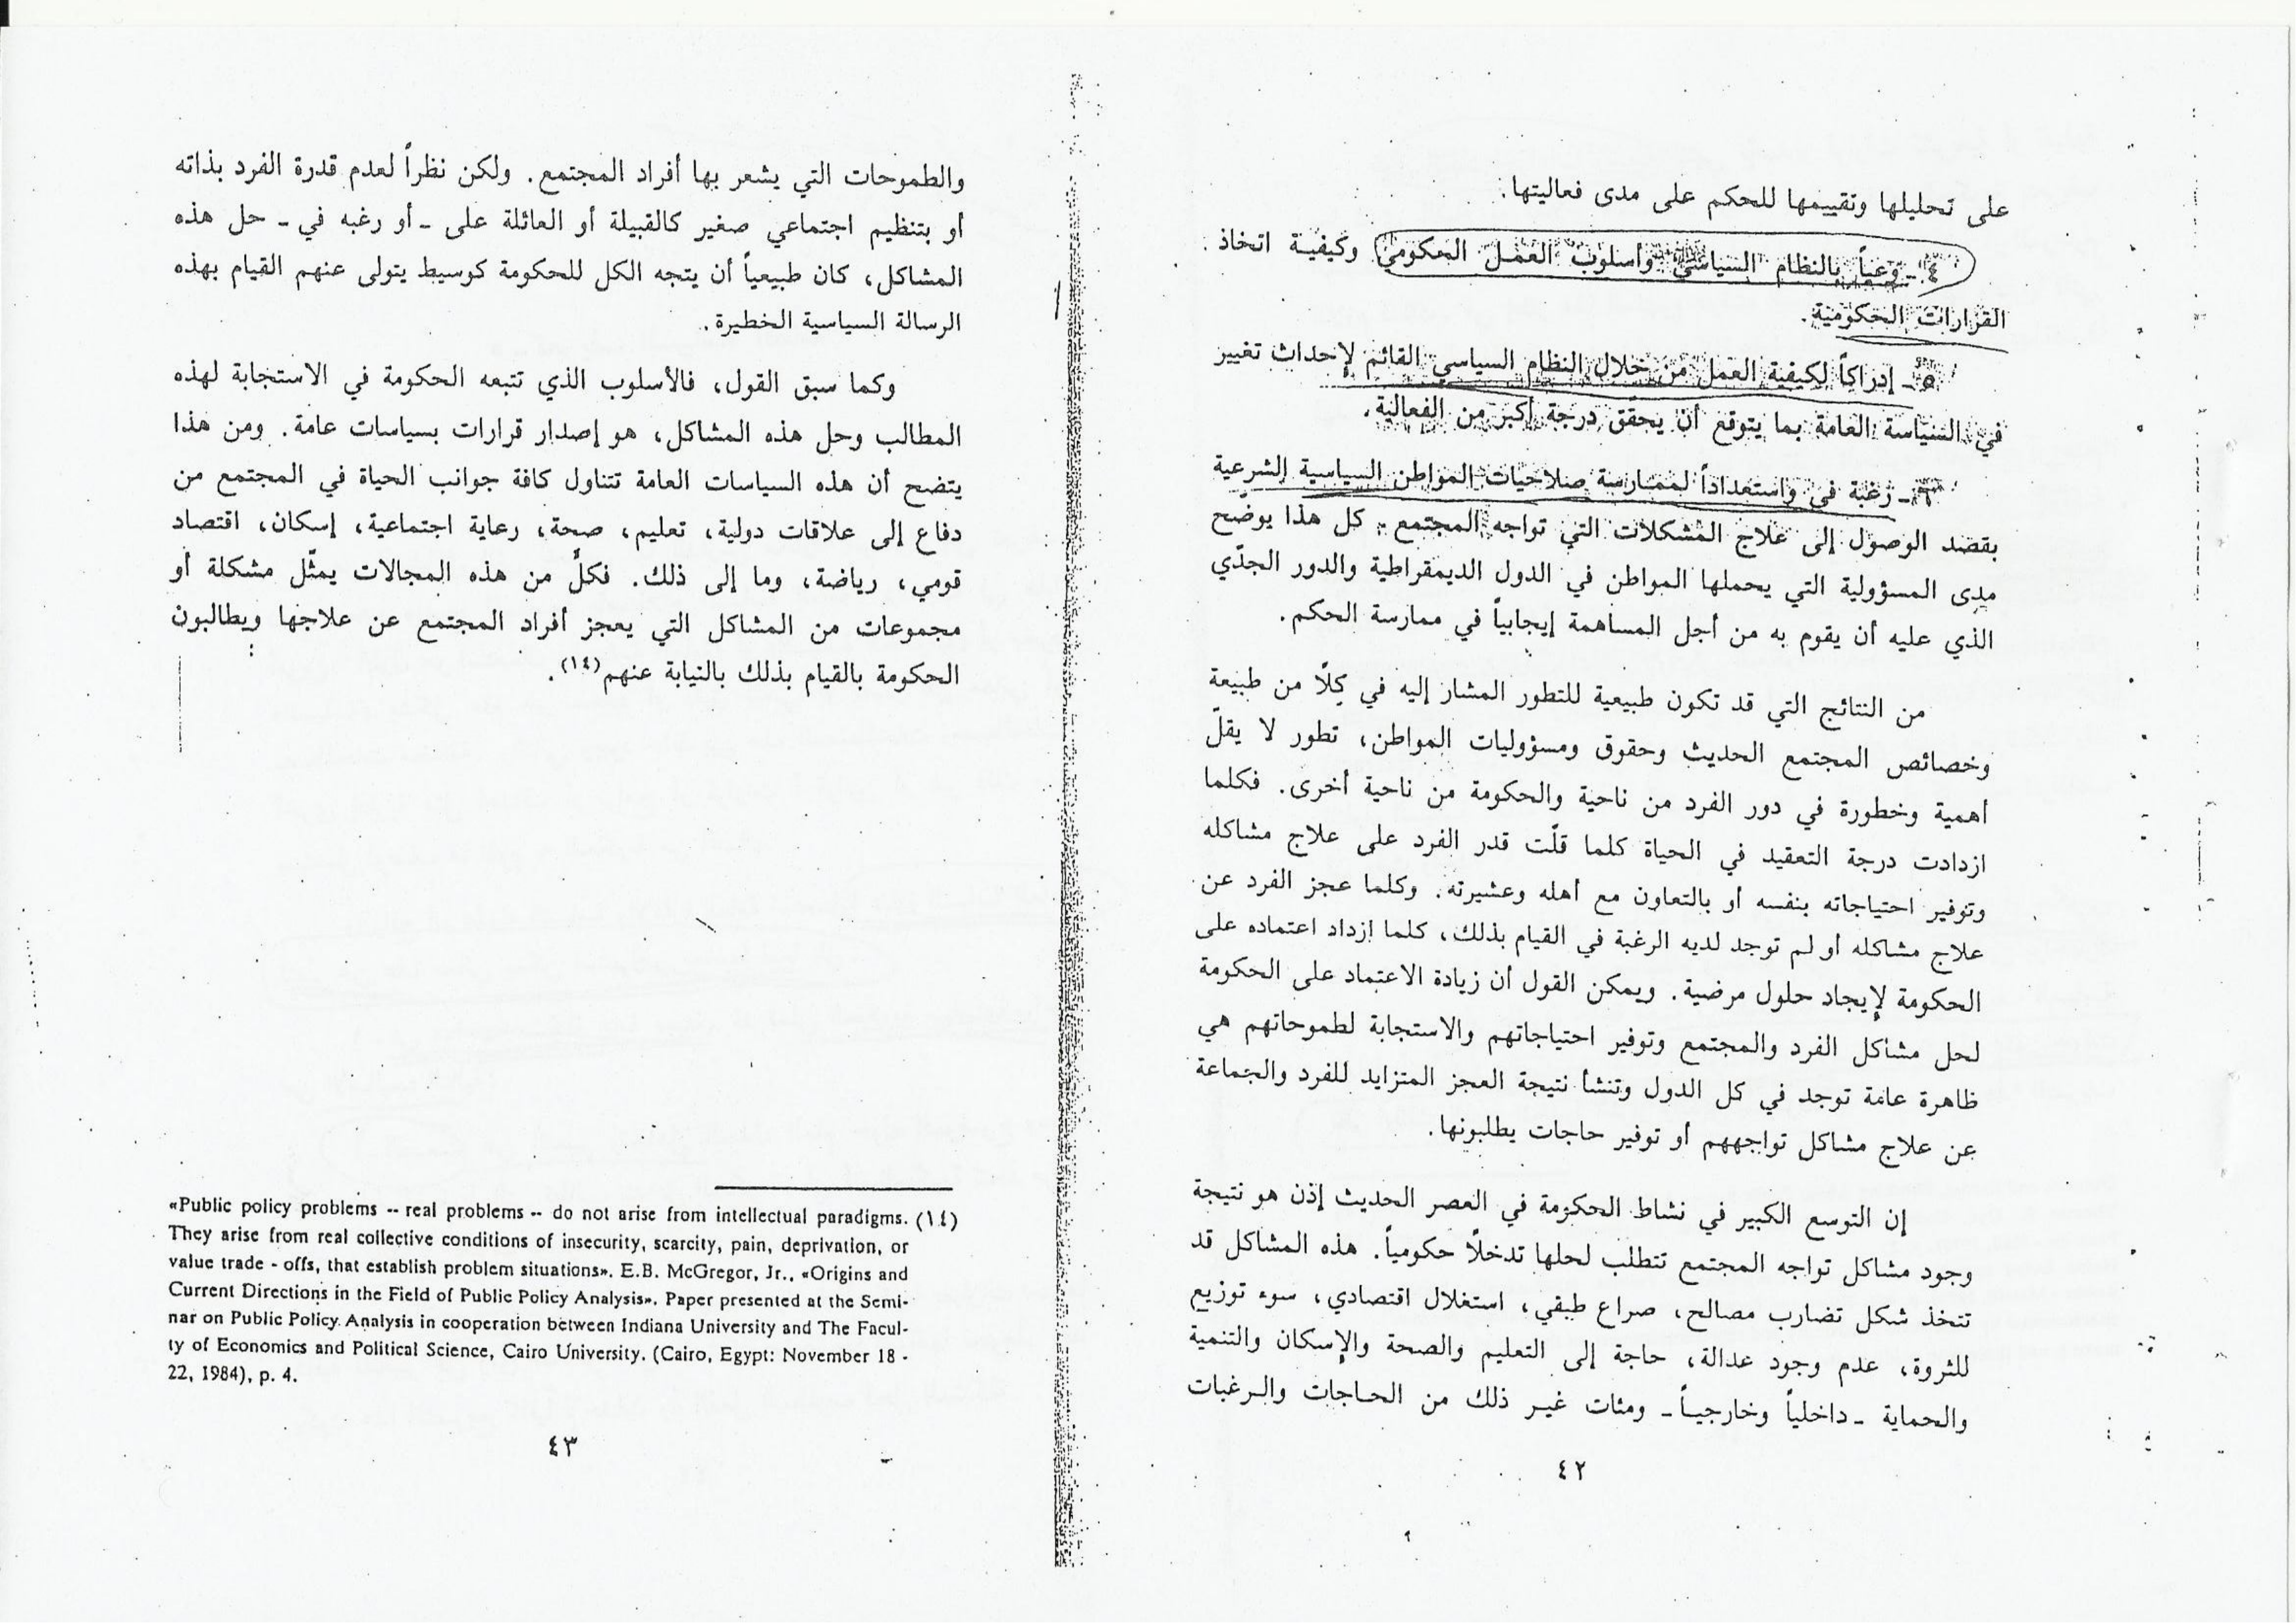 على تحليلها وتقييمها للحكم على مدى فعاليتها.
٤ - وعياً بالنظام السياسي وأسلوب العمل الحكومي وكيفية اتخاذ
القرارات الحكومية.
٥ - إدراكاً لكيفية العمل من خلال النظام السياسي القائم لإحداث تغيير
في السياسة العامة بما يتوقع أن يحقّق درجة أكبر من الفعالية.
٦ - رغبة في واستعداداً لممارسة صلاحيات المواطن السياسية الشرعية
بقصد الوصول إلى علاج المشكلات التي تواجه المجتمع. كل هذا يوضح
مدى المسؤولية التي يحملها المواطن في الدول الديمقراطية والدور الجدّي
الذي عليه أن يقوم به من أجل المساهمة إيجابياً في ممارسة الحكم.
من النتائج التي قد تكون طبيعية للتطور المشار إليه في كلًا من طبيعة
وخصائص المجتمع الحديث وحقوق ومسؤوليات المواطن، تطور لا يقلّ
أهمية وخطورة في دور الفرد من ناحية والحكومة من ناحية أخرى. فكلما
ازدادت درجة التعقيد في الحياة كلما قلّت قدر الفرد على علاج مشاكله
وتوفير احتياجاته بنفسه أو بالتعاون مع أهله وعشيرته. وكلما عجز الفرد عن
علاج مشاكله أو لم توجد لديه الرغبة في القيام بذلك، كلما ازداد اعتماده على
الحكومة لإيجاد حلول مرضية. ويمكن القول أن زيادة الاعتماد على الحكومة
لحل مشاكل الفرد والمجتمع وتوفير احتياجاتهم والاستجابة لطموحاتهم هي
ظاهرة عامة توجد في كل الدول وتنشأ نتيجة العجز المتزايد للفرد والجماعة
عن علاج مشاكل تواجههم أو توفير حاجات يطلبونها.
إن التوسع الكبير في نشاط الحكومة في العصر الحديث إذن هو نتيجة
وجود مشاكل تواجه المجتمع تتطلب لحلها تدخلًا حكومياً. هذه المشاكل قد
تتخذ شكل تضارب مصالح، صراع طبقي، استغلال اقتصادي، سوء توزيع
للثروة، عدم وجود عدالة، حاجة إلى التعليم والصحة والإسكان والتنمية
والحماية - داخلياً وخارجياً - ومئات غير ذلك من الحاجات والرغبات
٤٢
والطموحات التي يشعر بها أفراد المجتمع. ولكن نظراً لعدم قدرة الفرد بذاته
أو بتنظيم اجتماعي صغير كالقبيلة أو العائلة على - أو رغبه في - حل هذه
المشاكل، كان طبيعياً أن يتجه الكل للحكومة كوسيط يتولى عنهم القيام بهذه
الرسالة السياسية الخطيرة.
وكما سبق القول، فالأسلوب الذي تتبعه الحكومة في الاستجابة لهذه
المطالب وحل هذه المشاكل، هو إصدار قرارات بسياسات عامة. ومن هذا
يتضح أن هذه السياسات العامة تتناول كافة جوانب الحياة في المجتمع من
دفاع إلى علاقات دولية، تعليم، صحة، رعاية اجتماعية، إسكان، اقتصاد
قومي، رياضة، وما إلى ذلك. فكلٌ من هذه المجالات يمثّل مشكلة أو
مجموعات من المشاكل التي يعجز أفراد المجتمع عن علاجها ويطالبون
الحكومة بالقيام بذلك بالنيابة عنهم(١٤).
(١٤) «Public policy problems -- real problems -- do not arise from intellectual paradigms.
They arise from real collective conditions of insecurity, scarcity, pain, deprivation, or
value trade - offs, that establish problem situations». E.B. McGregor, Jr., «Origins and
Current Directions in the Field of Public Policy Analysis». Paper presented at the Semi-
nar on Public Policy Analysis in cooperation between Indiana University and The Facul-
ty of Economics and Political Science, Cairo University. (Cairo, Egypt: November 18 -
22, 1984), p. 4.
٤٣